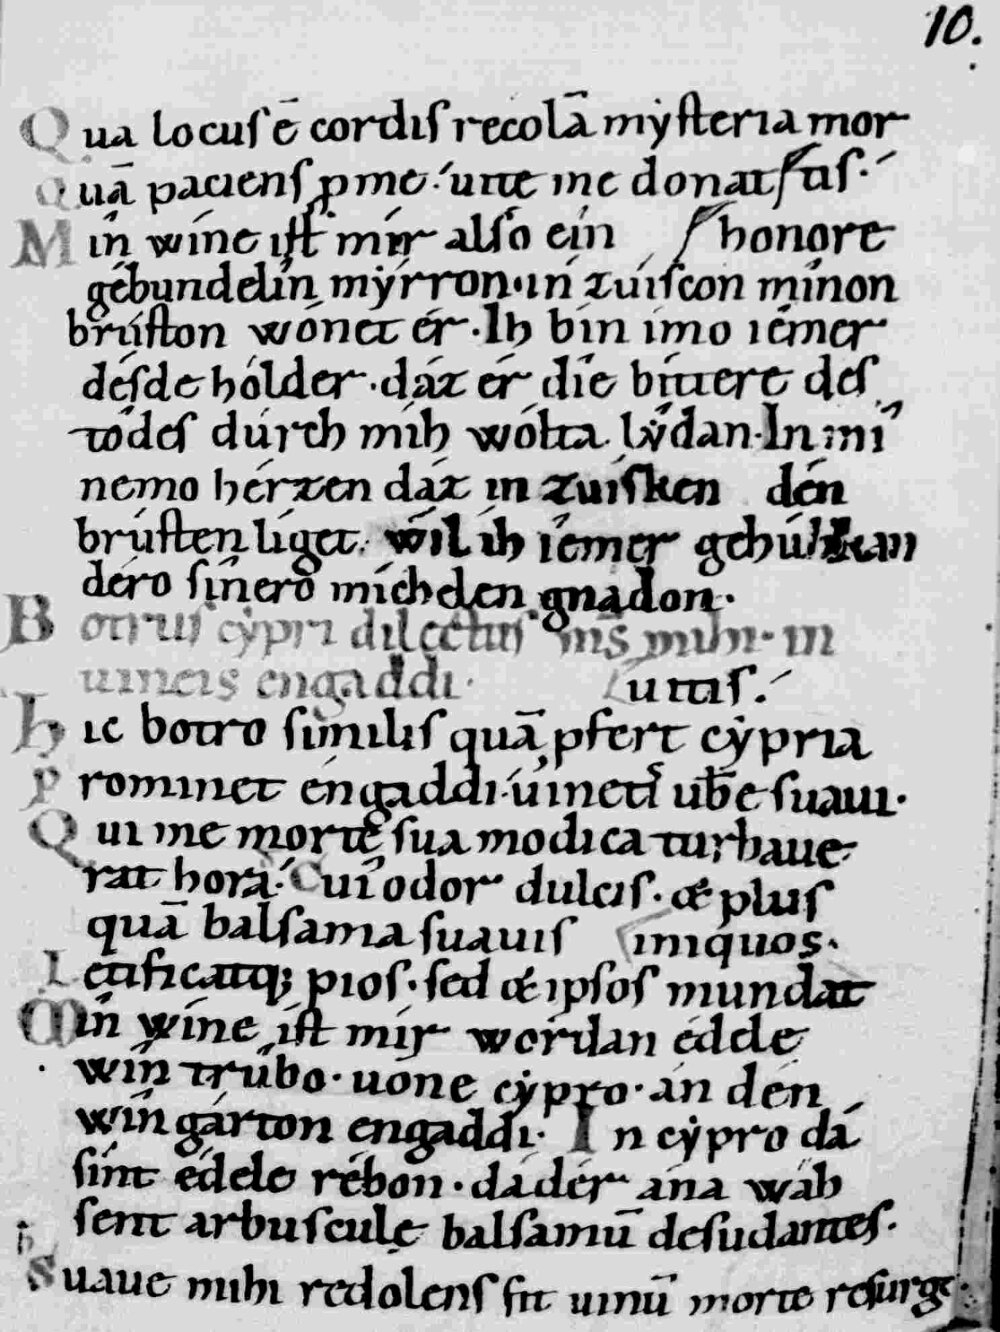 10.
Qua locus ē cordis recolā mẏsteria mor
Quā paciens p me. uitę me donat
tis.
Mîn wíne ist mír alsó eín
honore
gebúndelîn mẏ́rron. ín zuíscon mînon
brúston wónet ér. Ih bín ímo iémer
déste hólder. dáz ér díe bíttere des
tôdes dúrch míh wólta lẏ́dan. In mî
nemo hérzen dáz ín zuísken dén
brústen líget. wíl íh iémer gehúhtan
déro sînero míchelen gnâdon.
Botrus cẏpri dilectus ms̄ mihi. in
uineis engaddi.
Hic botro similis quā pfert cẏpria
uitis.
Prominet engaddi. uineti ubę suaui.
Qui me mortę sua modica turbaue
rat hora. Cui odor dulcis. & plus
quā balsama suauis
iniquos.
Lętificatq; pios. sed & ipsos mundat
Mîn wíne íst mír wórdan édele
wîntrûbo. uóne cẏpro. án dén
wîngárton engaddi. In cẏpro dá
sínt édele rébon. dá dér ána wáh
sent arbusculę balsamū desudantes.
Suaue mihi redolens fit uinū morte resurge